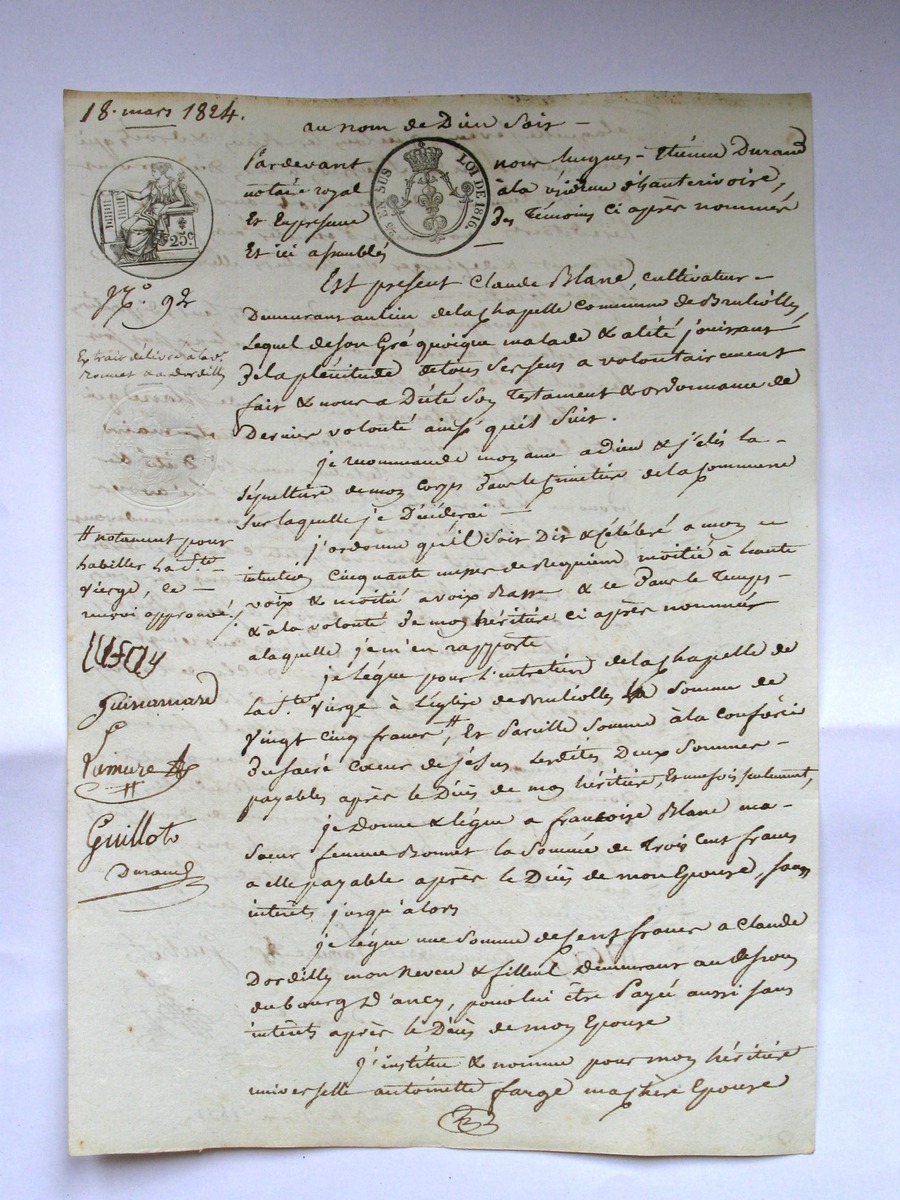 18. mars 1824.
au nom de Dieu Soit
25 EN SUS LOI DE 1816.
25c
Pardevant nous hugues-Etienne Durand
notaire royal à la résidence d'hauterivoire,
Et En presence Des Témoins ci après nommés
Et ici assemblés
N.° 92
Est present Claude Blanc, cultivateur
Demeurant au lieu de la chapelle commune de Brulliolles,
Lequel de son Gré quoique malade & alité jouissant
De la plénitude de tous ses sens a volontairement
fait & nous a Dicté Son Testament & ordonnance de
Derniere volonté ainsi qu'il Suit.
Extrait délivré à la ve
Bonnet & a Dordilly
je recommande mon ame a dieu & j'élis la
Sépulture de mon Corps Dans le Cimetière de la commune
Sur laquelle je Déciderai
j'ordonne qu'il Soit Dit & célébré a mon
intention Cinquante messes de Requiem moitié à haute
voix & moitié a voix Basse & ce Dans le Temps
& à la volonté De mon héritière ci après nommée
a laquelle je m'en rapporte
je légue pour L'entretien de la Chapelle de
La Ste Vierge à L'église de Brulliolles la Somme de
Vingt cinq francs #, Et Pareille Somme à la confrérie
Du Sacré Cœur de jésus Lesdites Deux Sommes
payables après le Décès de mon héritière, Et une fois seulement,
# notament pour
habiller La Ste
Vierge, le
renvoi approuvé.
Guinamard
Guillot
Durand
je Donne & légue a francoise Blanc ma
Sœur femme Bonnet la Somme de Trois Cent francs
a elle payable après le Décès de mon Epouse, Sans
interêts jusqu'alors
je légue une Somme de Cent francs a Claude
Dordilly mon Neveu & filleul Demeurant au dessous
du bourg D'ancy, pour lui être Payée aussi Sans
interêts après le Décès de mon Epouse
J'institue & nomme pour mon héritière
universelle antoinette farge ma chère Epouse